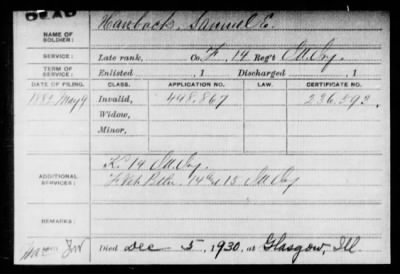 DEAD
NAME OF SOLDIER: Hanback, Samuel E.
SERVICE: Late rank, Co. F, 14 Reg't Ill Inf.
TERM OF SERVICE: Enlisted , 1 Discharged , 1
DATE OF FILING. CLASS. APPLICATION NO. LAW. CERTIFICATE NO.
1882 May 9 Invalid, 448.867 236.593
Widow,
Minor,
ADDITIONAL SERVICES: K. 14 Ill Inf.
F Vet Battn. 14 & 15 Ill Inf
REMARKS:
Died Dec 5, 1930, at Glasgow, Ill.